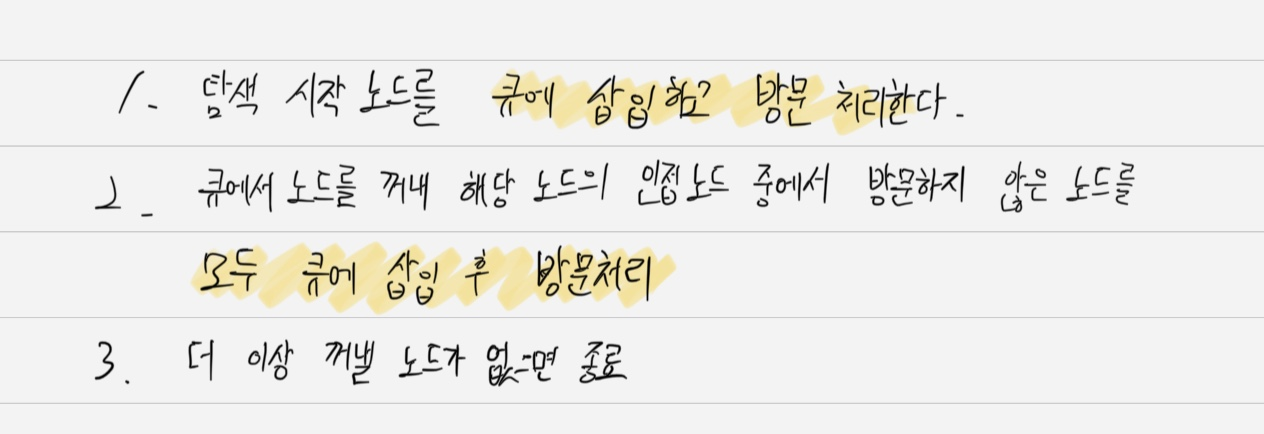 1. 탐색 시작 노드를 큐에 삽입하고 방문 처리한다.
2. 큐에서 노드를 꺼내 해당 노드의 인접노드 중에서 방문하지 않은 노드를
모두 큐에 삽입 후 방문처리
3. 더 이상 꺼낼 노드가 없으면 종료